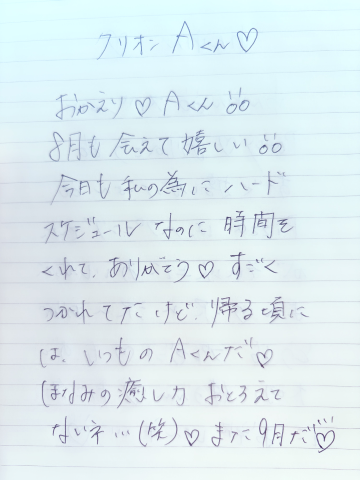 クリオン Aくん♡
おかえり♡Aくん
8月も会えて嬉しい
今日も私の為にハード
スケジュールなのに時間を
くれて、ありがとう♡すごく
つかれてたけど、帰る頃に
は、いつものAくんだ♡
ほなみの癒し力おとろえて
ないネ…(笑)♡また9月だ♡